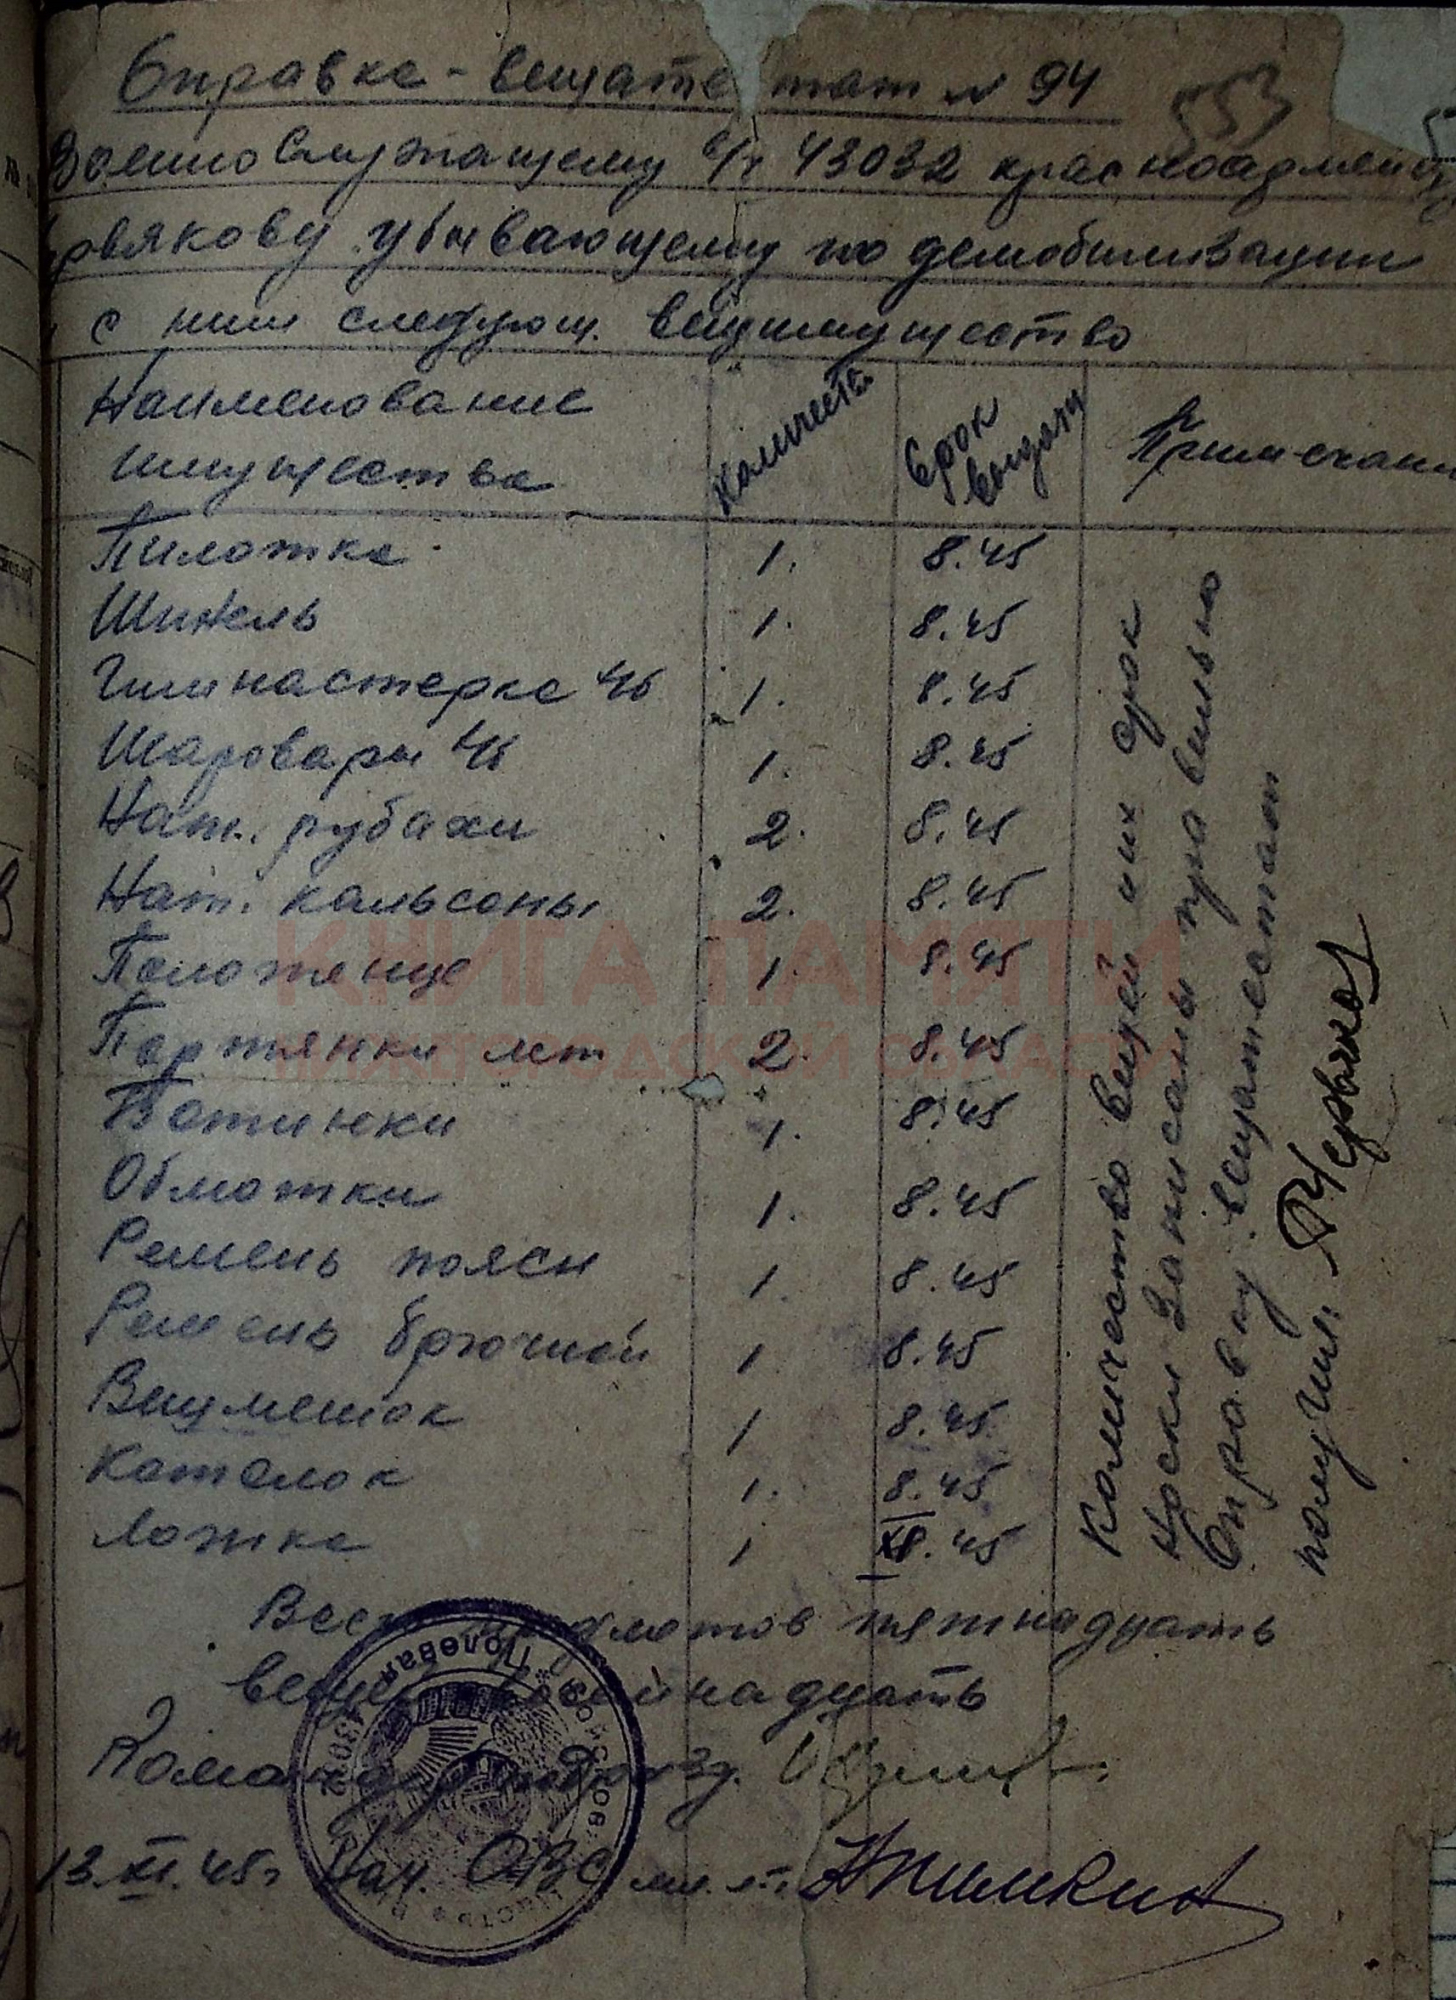 Справка - вещатестат № 94
553
Военнослужащему в/ч 43032 красноармейцу
рвякову убывающему по демобилизации
с ним следующ. вещимущество
Наименование имущества Количеств Срок выдачи Примечани
Пилотка 1. 8.45
Шинель 1. 8.45
Гимнастерка х/б 1. 8.45
Шаровары х/б 1. 8.45
Нат. рубахи 2. 8.45
Нат. кальсоны 2. 8.45
Полотенце 1. 8.45
Портянки лет 2. 8.45
Ботинки 1. 8.45
Обмотки 1. 8.45
Ремень поясн 1. 8.45
Ремень брючной 1 8.45
Вещмешок 1 8.45
Котелок 1. 8.45
Ложка 1 XI.45
Количество вещей и их срок
носки записаны правильно
Справку вещатестат
получил: Червяков
Всего предметов пятнадцать
вещей восемнадцать
Командир подразд.
13.XI.45г Нач. ОВС мл. л-т.
Полевая
Войсков
43032
КНИГА ПАМЯТИ
НИЖЕГОРОДСКОЙ ОБЛАСТИ